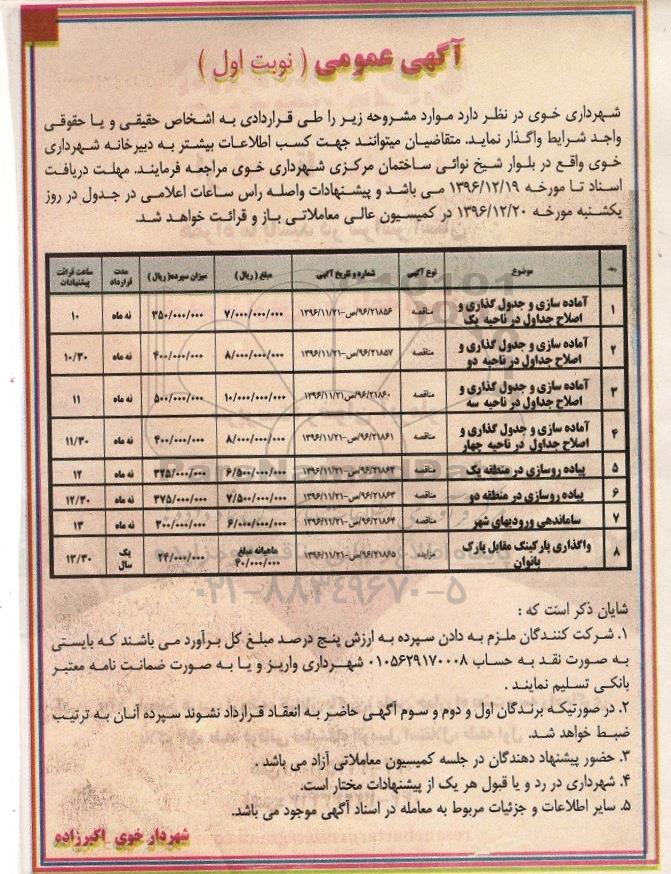 آگهی عمومی ( نوبت اول )
شهرداری خوی در نظر دارد موارد مشروحه زیر را طی قراردادی به اشخاص حقیقی و یا حقوقی
واجد شرایط واگذار نماید. متقاضیان میتوانند جهت کسب اطلاعات بیشتر به دبیرخانه شهرداری
خوی واقع در بلوار شیخ نوائی ساختمان مرکزی شهرداری خوی مراجعه فرمایند. مهلت دریافت
اسناد تا مورخه ۱۳۹۶/۱۲/۱۹ می باشد و پیشنهادات واصله راس ساعات اعلامی در جدول در روز
یکشنبه مورخه ۱۳۹۶/۱۲/۲۰ در کمیسیون عالی معاملاتی باز و قرائت خواهد شد.
موضوع نوع آگهی شماره و تاریخ آگهی مبلغ ( ریال ) میزان سپرده( ریال ) مدت قرارداد ساعت قرائت پیشنهادات
۱ آماده سازی و جدول گذاری و اصلاح جداول در ناحیه یک مناقصه ۹۶/۲۱۸۵۶/ص-۱۳۹۶/۱۱/۲۱ ۷/۰۰۰/۰۰۰/۰۰۰ ۳۵۰/۰۰۰/۰۰۰ نه ماه ۱۰
۲ آماده سازی و جدول گذاری و اصلاح جداول در ناحیه دو مناقصه ۹۶/۲۱۸۵۷/ص-۱۳۹۶/۱۱/۲۱ ۸/۰۰۰/۰۰۰/۰۰۰ ۴۰۰/۰۰۰/۰۰۰ نه ماه ۱۰/۳۰
۳ آماده سازی و جدول گذاری و اصلاح جداول در ناحیه سه مناقصه ۹۶/۲۱۸۶۰/ص-۱۳۹۶/۱۱/۲۱ ۱۰/۰۰۰/۰۰۰/۰۰۰ ۵۰۰/۰۰۰/۰۰۰ نه ماه ۱۱
۴ آماده سازی و جدول گذاری و اصلاح جداول در ناحیه چهار مناقصه ۹۶/۲۱۸۶۱/ص-۱۳۹۶/۱۱/۲۱ ۸/۰۰۰/۰۰۰/۰۰۰ ۴۰۰/۰۰۰/۰۰۰ نه ماه ۱۱/۳۰
۵ پیاده روسازی در منطقه یک مناقصه ۹۶/۲۱۸۶۲/ص-۱۳۹۶/۱۱/۲۱ ۶/۵۰۰/۰۰۰/۰۰۰ ۳۲۵/۰۰۰/۰۰۰ نه ماه ۱۲
۶ پیاده روسازی در منطقه دو مناقصه ۹۶/۲۱۸۶۳/ص-۱۳۹۶/۱۱/۲۱ ۷/۵۰۰/۰۰۰/۰۰۰ ۳۷۵/۰۰۰/۰۰۰ نه ماه ۱۲/۳۰
۷ ساماندهی ورودیهای شهر مناقصه ۹۶/۲۱۸۶۴/ص-۱۳۹۶/۱۱/۲۱ ۶/۰۰۰/۰۰۰/۰۰۰ ۳۰۰/۰۰۰/۰۰۰ نه ماه ۱۳
۸ واگذاری پارکینگ مقابل پارک بانوان مزایده ۹۶/۲۱۸۶۵/ص-۱۳۹۶/۱۱/۲۱ ماهیانه مبلغ ۴۰/۰۰۰/۰۰۰ ۲۴/۰۰۰/۰۰۰ یک سال ۱۳/۳۰
۰۲۱-۸۸۳۴۹۶۷۰-۵
شایان ذکر است که :
۱. شرکت کنندگان ملزم به دادن سپرده به ارزش پنج درصد مبلغ کل برآورد می باشند که بایستی
به صورت نقد به حساب ۰۱۰۵۶۲۹۱۷۰۰۰۸ شهرداری واریز و یا به صورت ضمانت نامه معتبر
بانکی تسلیم نمایند .
۲. در صورتیکه برندگان اول و دوم و سوم آگهی حاضر به انعقاد قرارداد نشوند سپرده آنان به ترتیب
ضبط خواهد شد.
۳. حضور پیشنهاد دهندگان در جلسه کمیسیون معاملاتی آزاد می باشد .
۴. شهرداری در رد و یا قبول هر یک از پیشنهادات مختار است.
۵. سایر اطلاعات و جزئیات مربوط به معامله در اسناد آگهی موجود می باشد.
شهردار خوی اکبرزاده